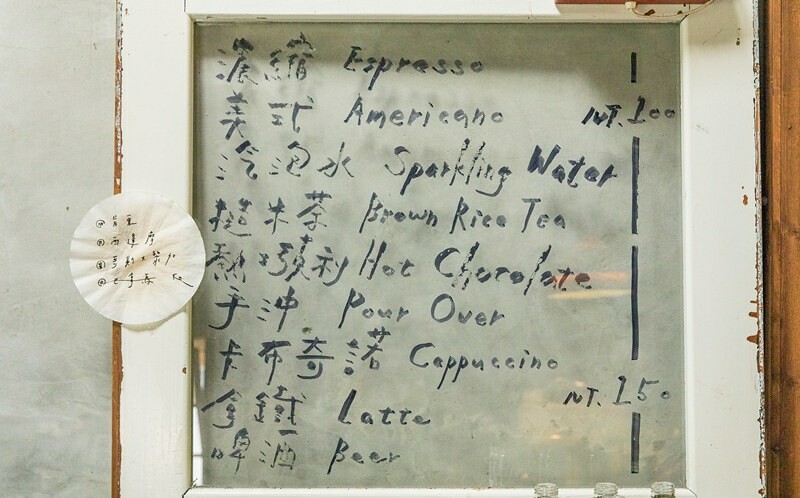 濃縮 Espresso
美式 Americano
NT. 100
汽泡水 Sparkling Water
米茶 Brown Rice Tea
熱 利 Hot Chocolate
手沖 Pour Over
卡布奇諾 Cappuccino
NT. 150
拿鐵 Latte
啤酒 Beer